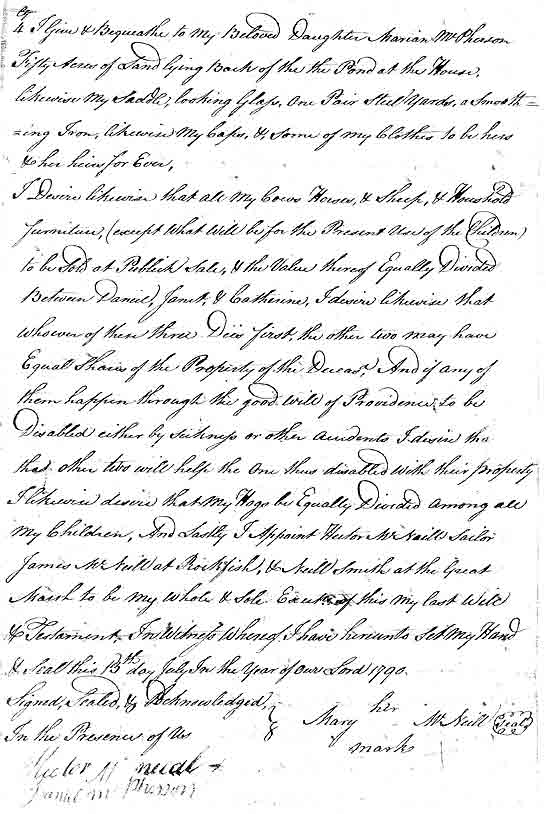 4 I Give & Bequeathe to My Beloved Daughter Marian McPherson
Fifty Acres of Land lying Back of the the Pond at the House,
likewise My Saddle, looking Glass, One Pair Steel Yards, a Smooth=
=ing Iron, likewise My Caps, & Some of my Clothes to be hers
& her heirs for Ever,
I Desire likewise that all My Cows Horses, & Sheep, & Household
furniture, (except What Will be for the Present Use of the Children)
to be Sold at Publick Sale, & the Value thereof Equally Divided
Between Daniel, Janet, & Catherine, I desire likewise that
Whoever of these three Dies first, the other two may have
Equal Shares of the Property of the Deceasd. And if any of
them happen through the good Will of Providence to be
Disabled either by Sickness or other accidents I desire tha
the other two will help the One thus disabled With their property
I likewise desire that My Hogs be Equally Divided among all
my Children, And Lastly I Appoint Hector McNeill Sailor
James McNeill at Rockfish, & Neill Smith at the Great
Marsh to be my Whole & Sole of this My last Will
& Testament In Witness Whereof I have hereunto Set My Hand
& Seal this 13th day July In the Year of Our Lord 1790.
Signed, Sealed, & Acknowledged,
In the Presence of Us
her
Mary McNeill Seal
mark
Hector McNeill
Daniel McPherson